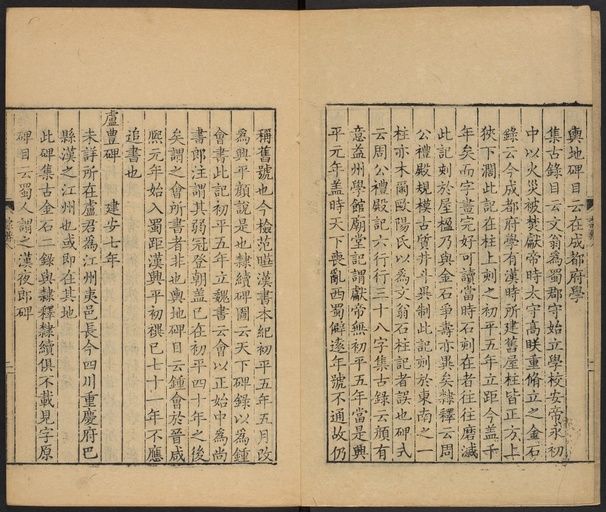 輿地碑目云在成都府學
集古錄目云文翁為蜀郡守始立學校安帝永初
中以火災被焚獻帝時太守高眹重脩立之金石
錄云今成都府學有漢時所建舊屋柱皆正方上
狹下濶此記在柱上刻之初平五年立距今蓋千
年矣而字畫完好可讀當時石刻在者往往磨滅
此記刻於屋楹乃與金石爭壽亦異矣隸釋云周
公禮殿規模古質井斗異制此記刻於東南之一
柱亦木爾歐陽氏以為文翁石柱記者誤也碑式
云周公禮殿記六行行三十八字集古錄云顏有
意益州學館廟堂記謂獻帝無初平五年當是興
平元年蓋時天下喪亂西蜀僻遠年號不通故仍
稱舊號也今檢范曄漢書本紀初平五年五月改
為興平顏說是也隸續碑圖云天下碑錄以為鍾
會書此記初平五年立魏書云會以正始中為尚
書郎注謂其弱冠登朝蓋已在初平四十年之後
矣謂之會所書者非也輿地碑目云鍾會於晉咸
熙元年始入蜀距漢興平初禩已七十一年不應
追書也
盧豐碑 建安七年
未詳所在盧君為江州夷邑長今四川重慶府巴
縣漢之江州也或即在其地
此碑集古金石二錄與隸釋隸續俱不載見字原
碑目云蜀人謂之漢夜郎碑